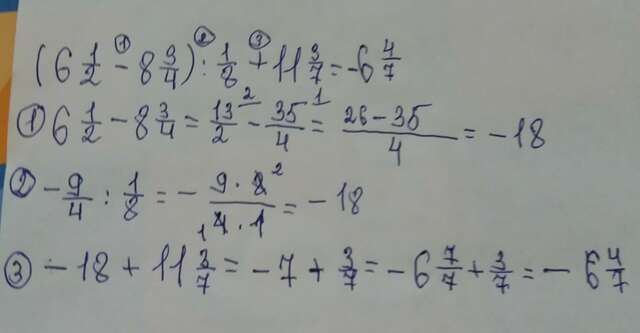 (6 1/2 - 8 3/4) : 1/8 + 11 3/7 = -6 4/7
① 6 1/2 - 8 3/4 = 13/2 - 35/4 = (26 - 35)/4 = -18
② - 9/4 : 1/8 = - (9 · 8)/(4 · 1) = -18
③ - 18 + 11 3/7 = -7 + 3/7 = -6 7/7 + 3/7 = - 6 4/7